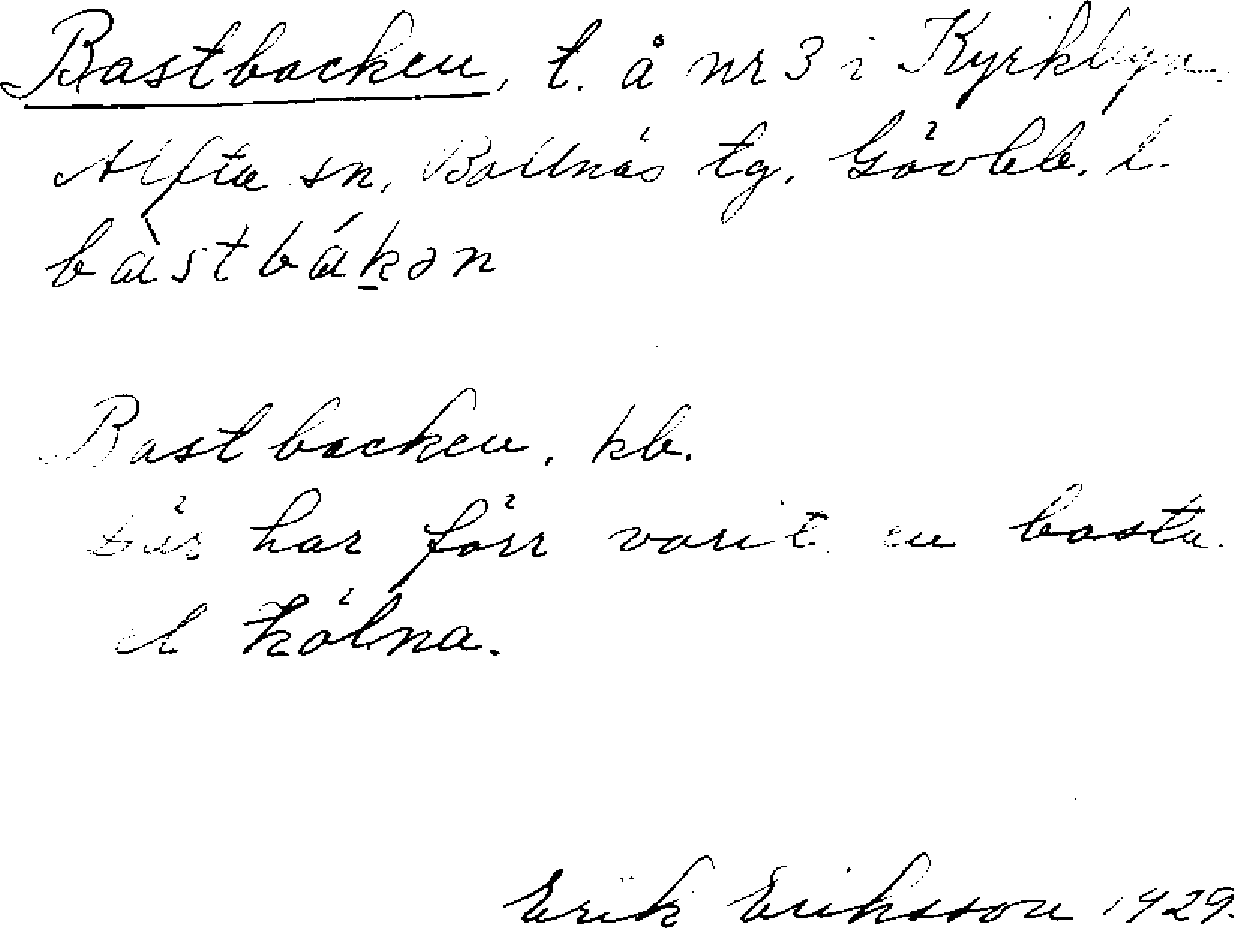 Bastbacken, t. å nr 3 i Kyrkbyn
Alfta sn, Bollnäs tg. Gävleb. l.
bàstbák̠ən
Bastbacken, kb.
Där har förr varit en basta
el kölna.
Erik Eriksson 1929.